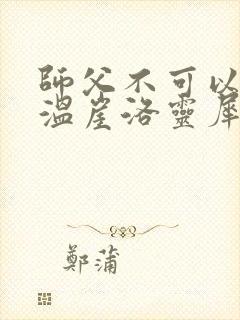 師父不可以
溫崖洛靈犀
鄭蒲